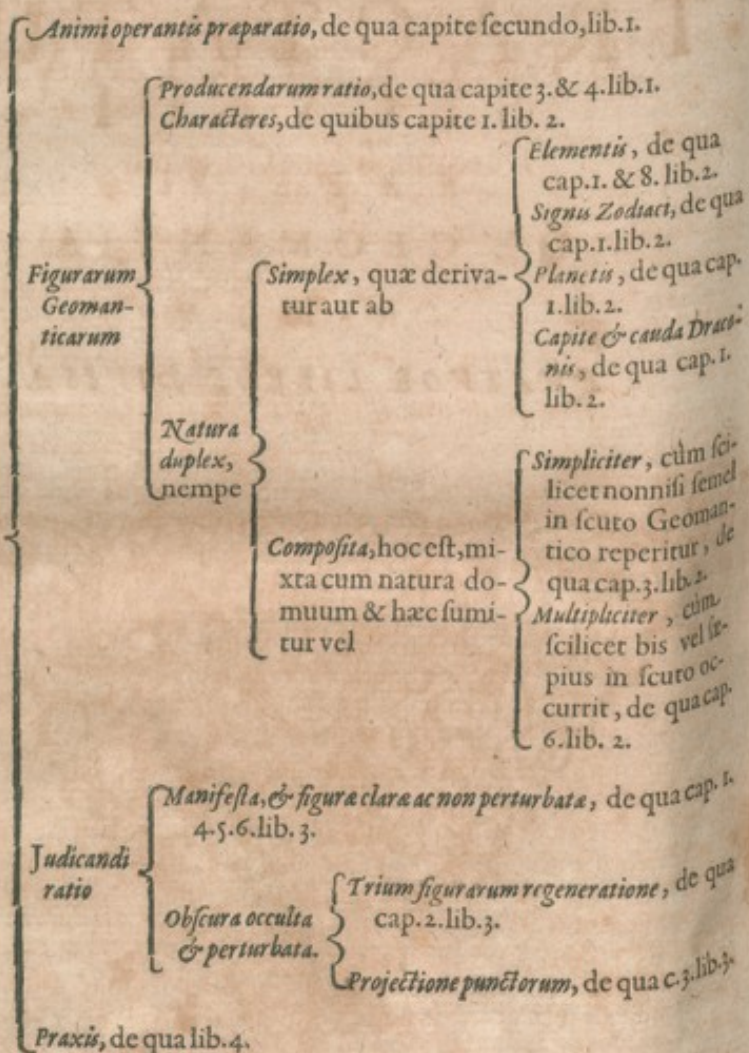 Animi operantis præparatio, de qua capite ſecundo, lib.1.
Producendarum ratio, de qua capite 3. & 4. lib.1.
Characteres, de quibus capite 1. lib. 2.
Figurarum
Geoman-
ticarum
Natura
duplex,
nempe
Simplex, quæ deriva-
tur aut ab
Elementis, de qua
cap.1. & 8. lib.2.
Signis Zodiaci, de qua
cap.1.lib.2.
Planetis, de qua cap.
1.lib.2.
Capite & cauda Draco-
nis, de qua cap.1.
lib.2.
Compoſita, hoc eſt, mi-
xta cum natura do-
muum & hæc ſumi-
tur vel
Simpliciter, cùm ſci-
licet nonniſi ſemel
in ſcuto Geoman-
tico reperitur, de
qua cap.3.lib.2.
Multipliciter, cùm
ſcilicet bis vel ſæ-
pius in ſcuto oc-
currit, de qua cap.
6.lib. 2.
Judicandi
ratio
Manifeſta, & figuræ claræ ac non perturbatæ, de qua cap. 1.
4.5.6.lib.3.
Obſcura occulta
& perturbata.
Trium figurarum regeneratione, de qua
cap.2.lib.3.
Projectione punctorum, de qua c.3.lib.3.
Praxis, de qua lib.4.